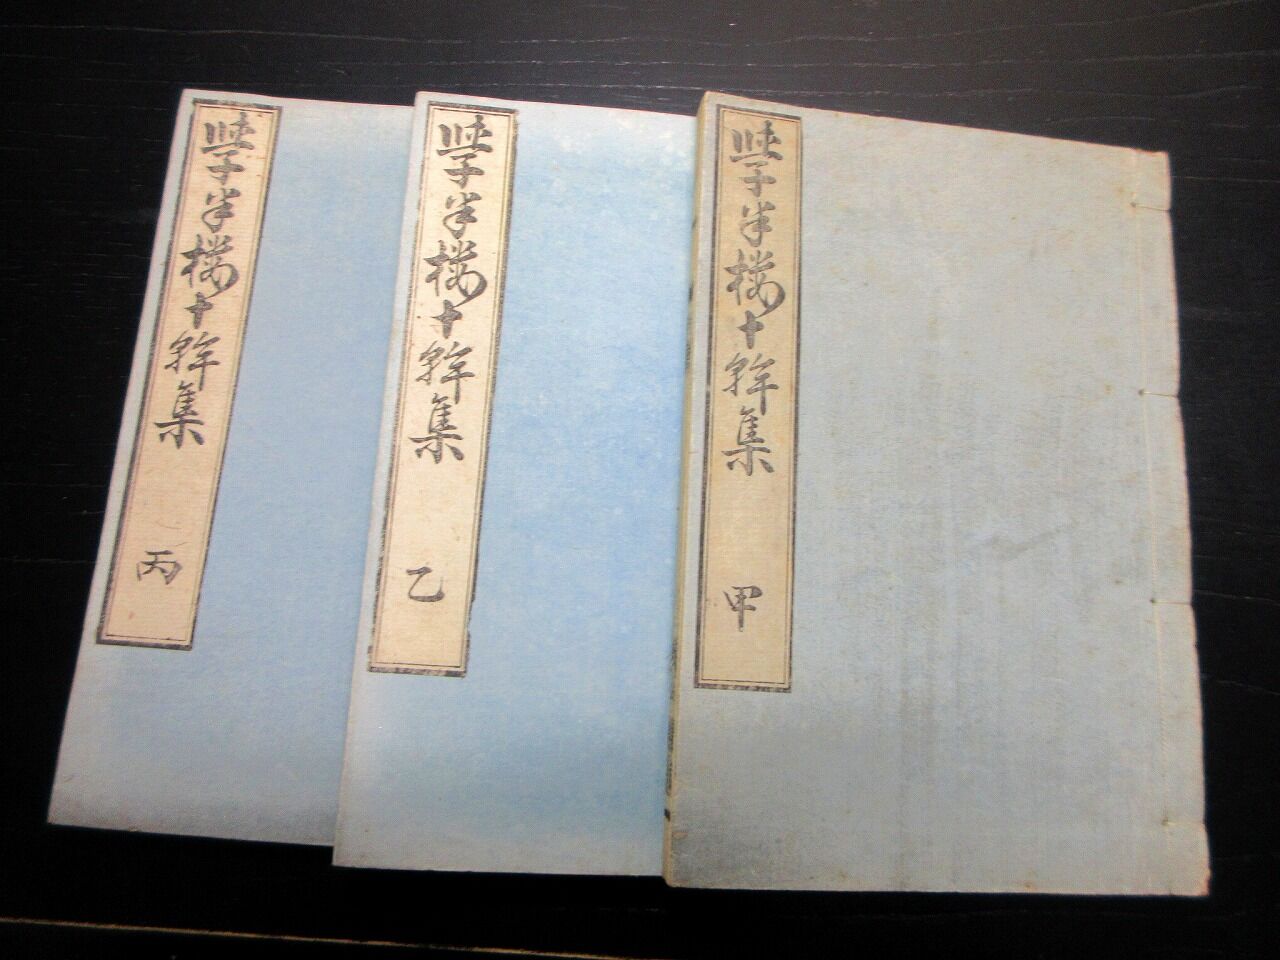 學半樓十幹集 甲
學半樓十幹集 乙
學半樓十幹集 丙